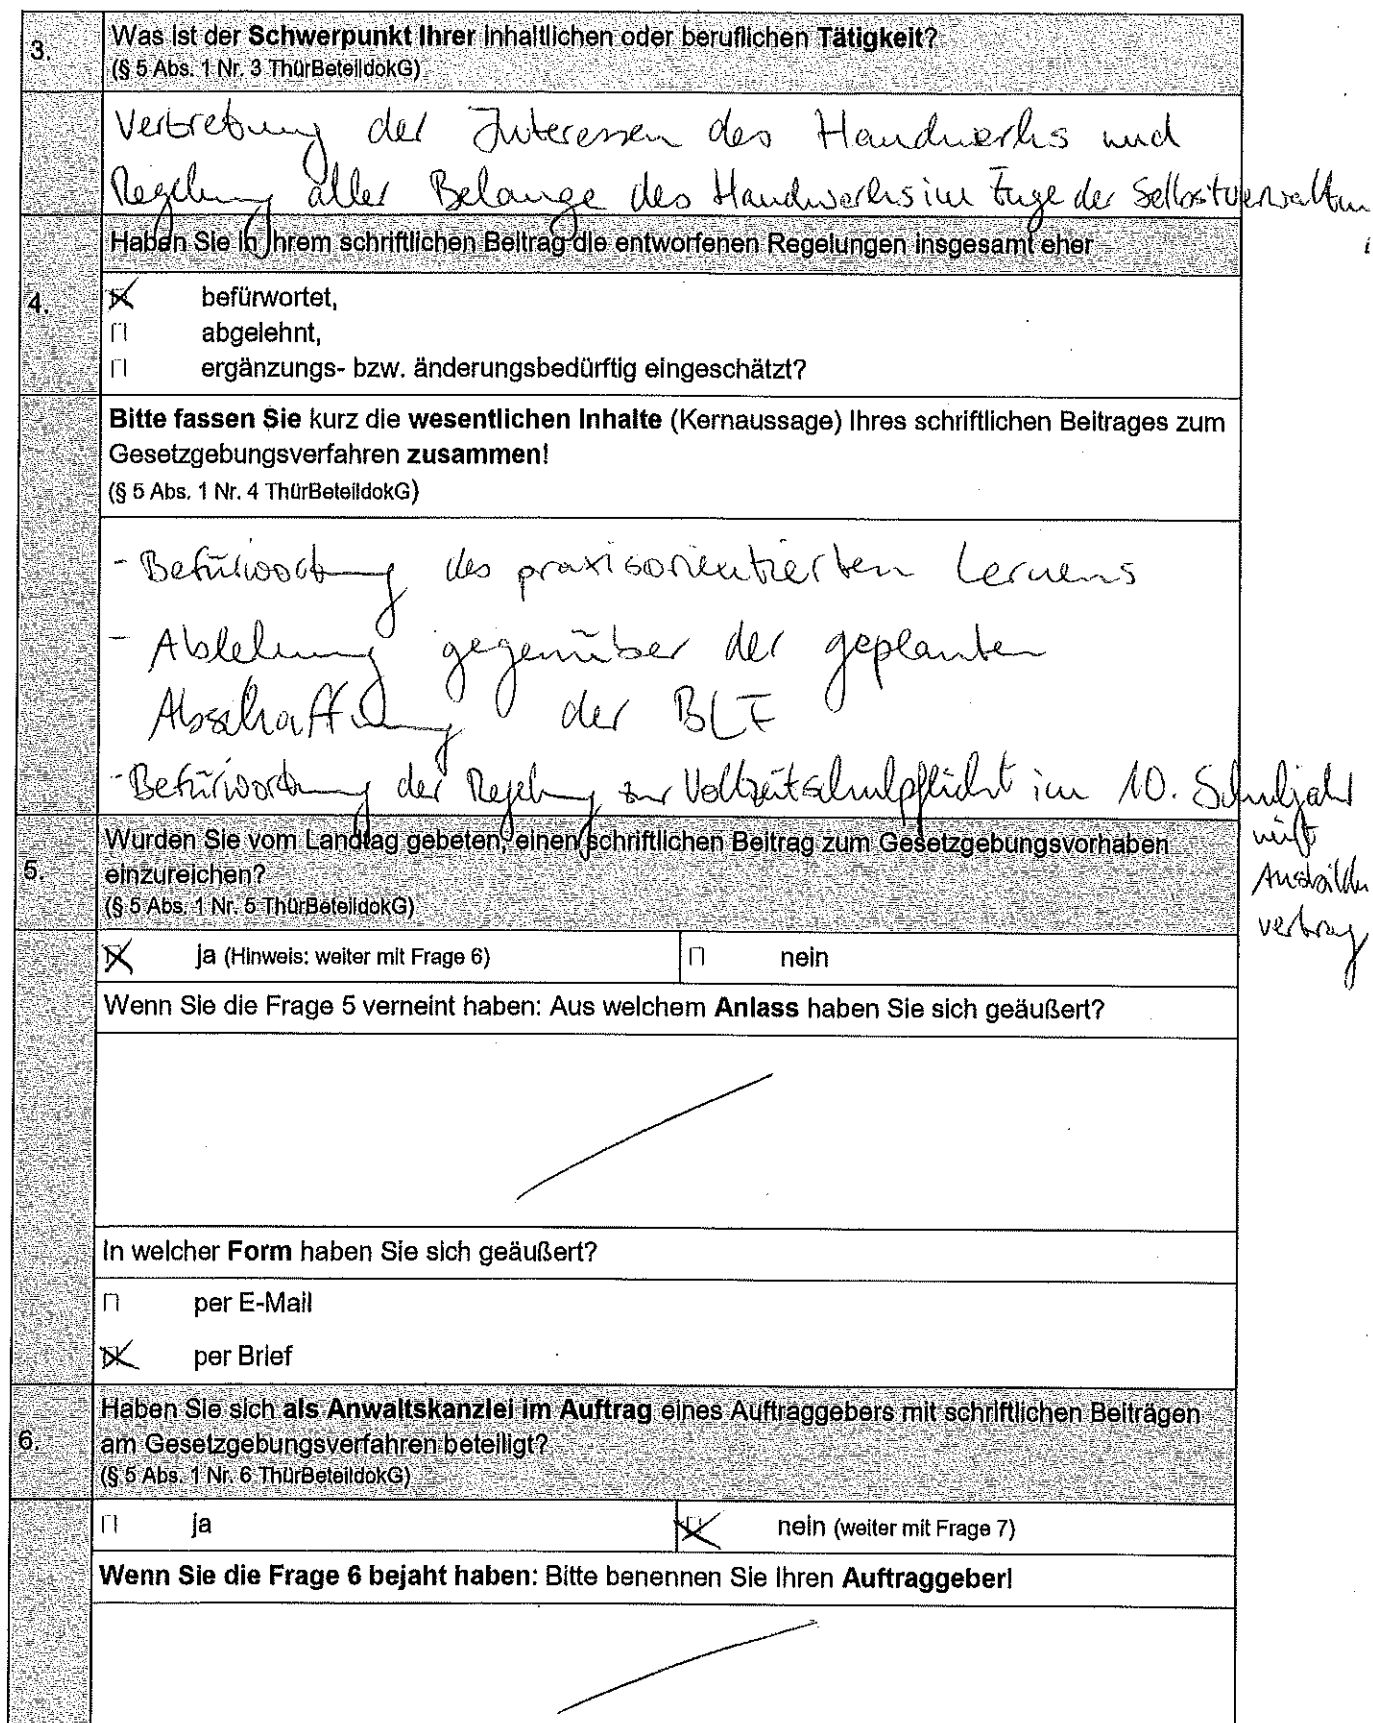 3.
Was ist der Schwerpunkt Ihrer inhaltlichen oder beruflichen Tätigkeit?
(§ 5 Abs. 1 Nr. 3 ThürBeteildokG)
Vertretung der Interessen des Handwerks und
Regelung aller Belange des Handwerks im Zuge der Selbstverwaltun
Haben Sie in Ihrem schriftlichen Beitrag die entworfenen Regelungen insgesamt eher
4.
befürwortet,
abgelehnt,
ergänzungs- bzw. änderungsbedürftig eingeschätzt?
Bitte fassen Sie kurz die wesentlichen Inhalte (Kernaussage) Ihres schriftlichen Beitrages zum
Gesetzgebungsverfahren zusammen!
(§ 5 Abs. 1 Nr. 4 ThürBeteildokG)
- Befürwortung des praxisorientierten Lernens
- Ablehnung gegenüber der geplanten
Abschaffung der BLF
- Befürwortung der Regelung zur Vollzeitschulpflicht im 10. Schuljahr
mit
Ausbildu
vertrag
5.
Wurden Sie vom Landtag gebeten, einen schriftlichen Beitrag zum Gesetzgebungsvorhaben
einzureichen?
(§ 5 Abs. 1 Nr. 5 ThürBeteildokG)
ja (Hinweis: weiter mit Frage 6) nein
Wenn Sie die Frage 5 verneint haben: Aus welchem Anlass haben Sie sich geäußert?
In welcher Form haben Sie sich geäußert?
per E-Mail
per Brief
6.
Haben Sie sich als Anwaltskanzlei im Auftrag eines Auftraggebers mit schriftlichen Beiträgen
am Gesetzgebungsverfahren beteiligt?
(§ 5 Abs. 1 Nr. 6 ThürBeteildokG)
ja nein (weiter mit Frage 7)
Wenn Sie die Frage 6 bejaht haben: Bitte benennen Sie Ihren Auftraggeber!